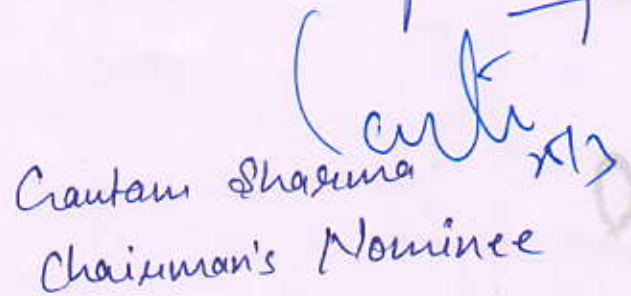 Gautam Sharma
Chairman's Nominee